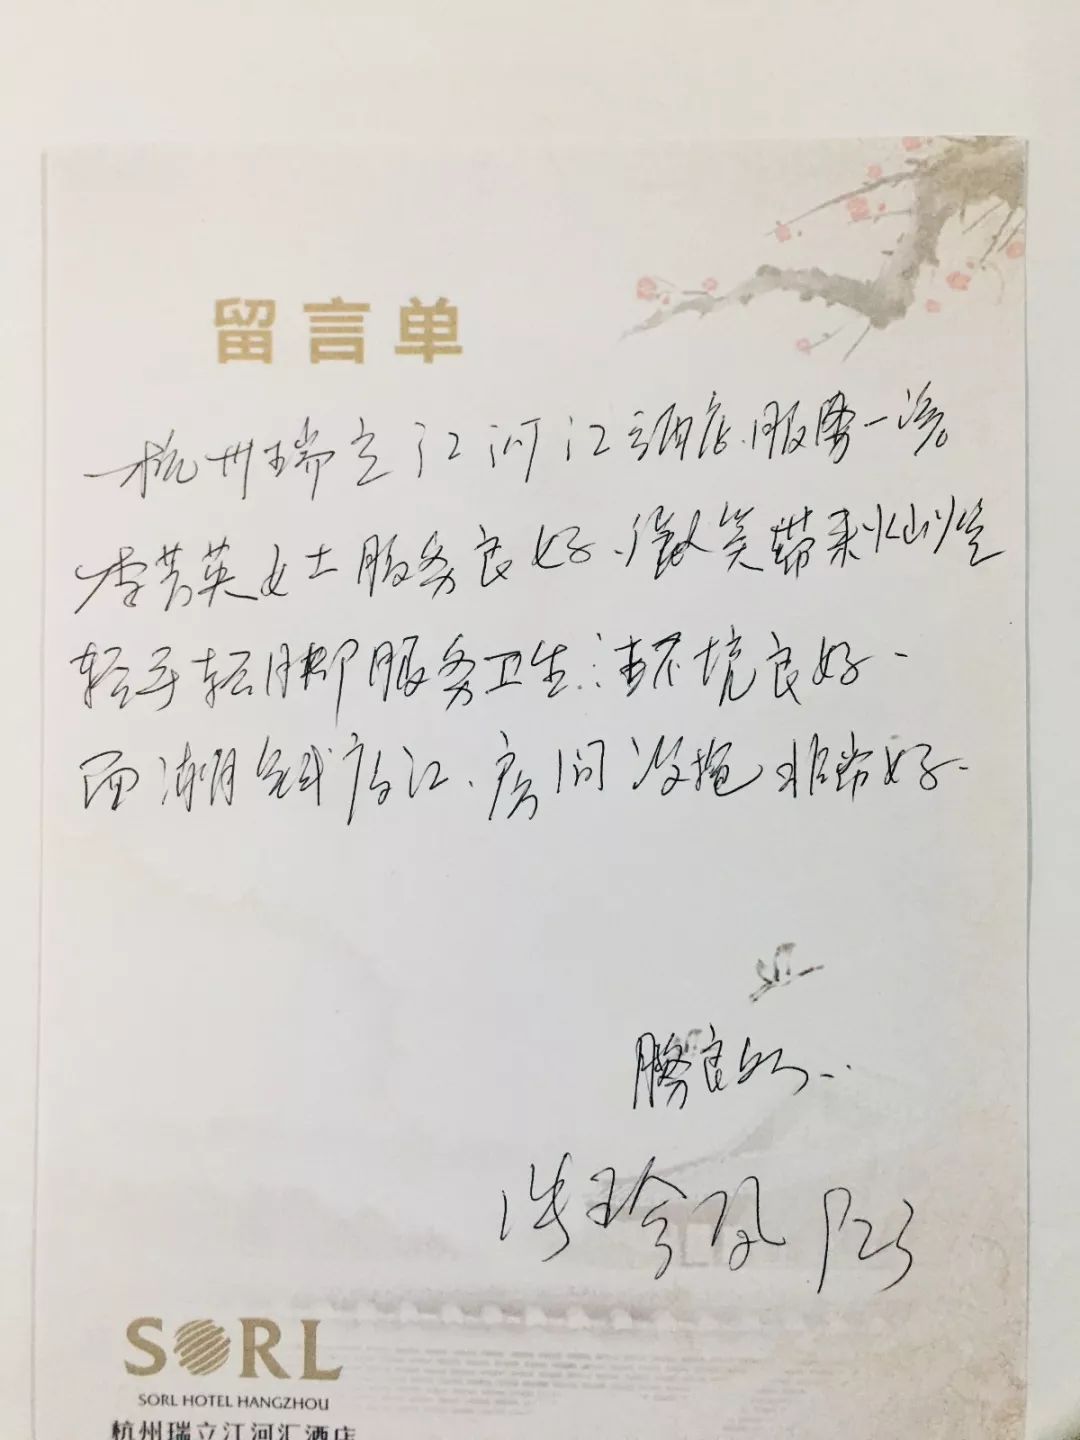 留言单
杭州瑞立江河江酒店.服务一流。
李芳英女士服务良好.微笑带来
轻手轻脚服务卫生.环境良好.
西湖钱唐江.房间设施非常好.
服务良好..
洪玲凤 723
SORL
SORL HOTEL HANGZHOU
杭州瑞立江河汇酒店